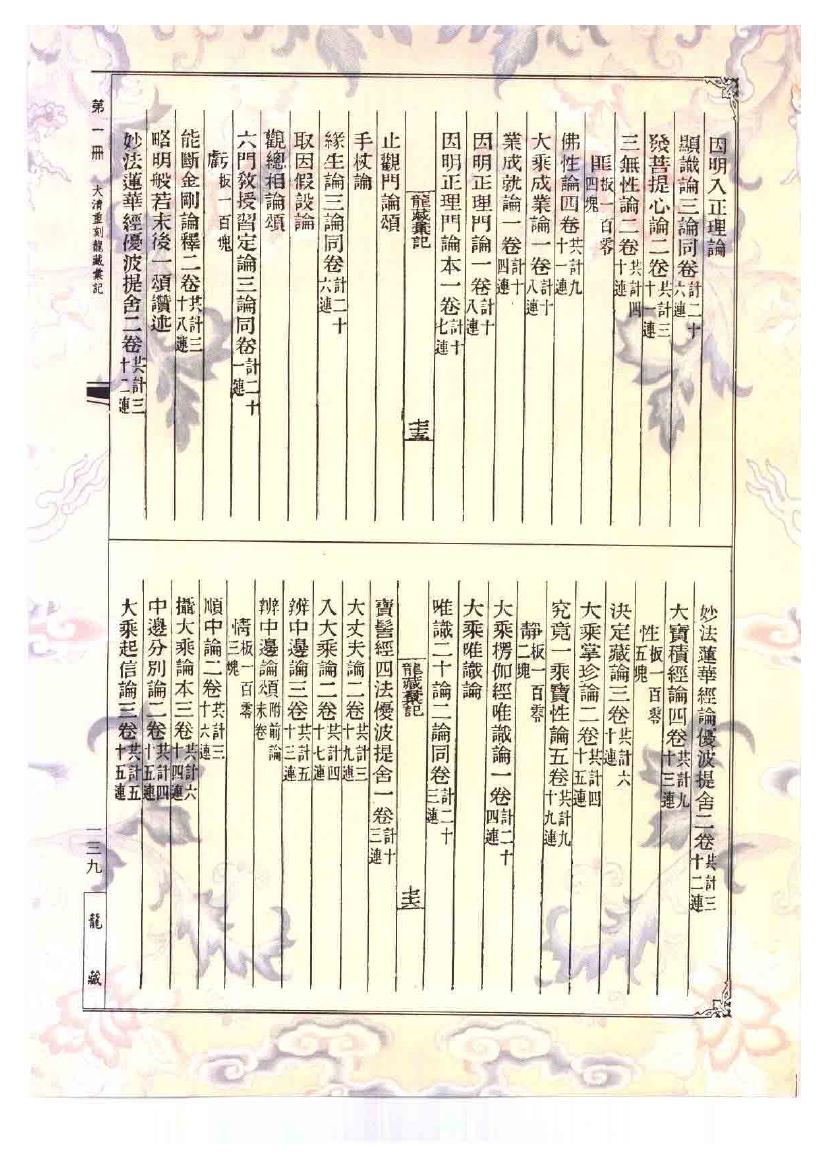 因明入正理論
顯識論三論同卷計二十六連
發菩提心論二卷共計三十一連
三無性論二卷共計四十連
匪板一百零四塊
佛性論四卷共計九十一連
大乘成業論一卷計十八連
業成就論一卷計十四連
因明正理門論一卷計十八連
因明正理門論本一卷計十七連
龍藏彙記 七十五
止觀門論頌
手杖論
緣生論三論同卷計二十六連
取因假設論
觀總相論頌
六門教授習定論三論同卷計二十一連
虧板一百塊
能斷金剛論釋二卷共計三十八連
略明般若末後一頌讚述
妙法蓮華經優波提舍二卷共計三十二連
第一冊 大清重刻龍藏彙記
妙法蓮華經論優波提舍二卷共計三十二連
大寶積經論四卷共計九十三連
性板一百零五塊
決定藏論三卷共計六十連
大乘掌珍論二卷共計四十五連
究竟一乘寶性論五卷共計九十九連
靜板一百零二塊
大乘楞伽經唯識論一卷計二十四連
大乘唯識論
唯識二十論二論同卷計二十三連
龍藏彙記 七十六
寶髻經四法優波提舍一卷計十三連
大丈夫論二卷共計三十九連
入大乘論二卷共計四十七連
辨中邊論三卷共計五十三連
辨中邊論頌附前論末卷
情板一百零三塊
順中論二卷共計三十六連
攝大乘論本三卷共計六十四連
中邊分別論二卷共計四十五連
大乘起信論三卷共計五十五連
一三九
龍藏